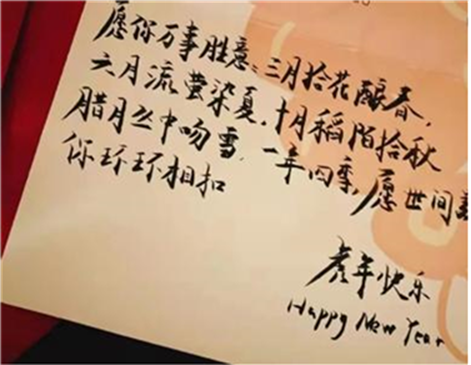 愿你万事胜意,三月拾花酿春,
六月流萤染夏,十月稻陌拾秋
腊月丛中吻雪,一年四季,愿世间
你环环相扣
虎年快乐
Happy New Year